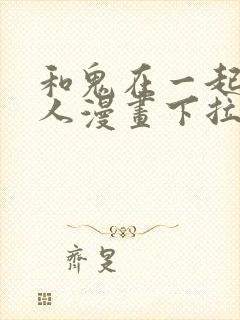 和鬼在一起
人漫畫下拉
齊旻